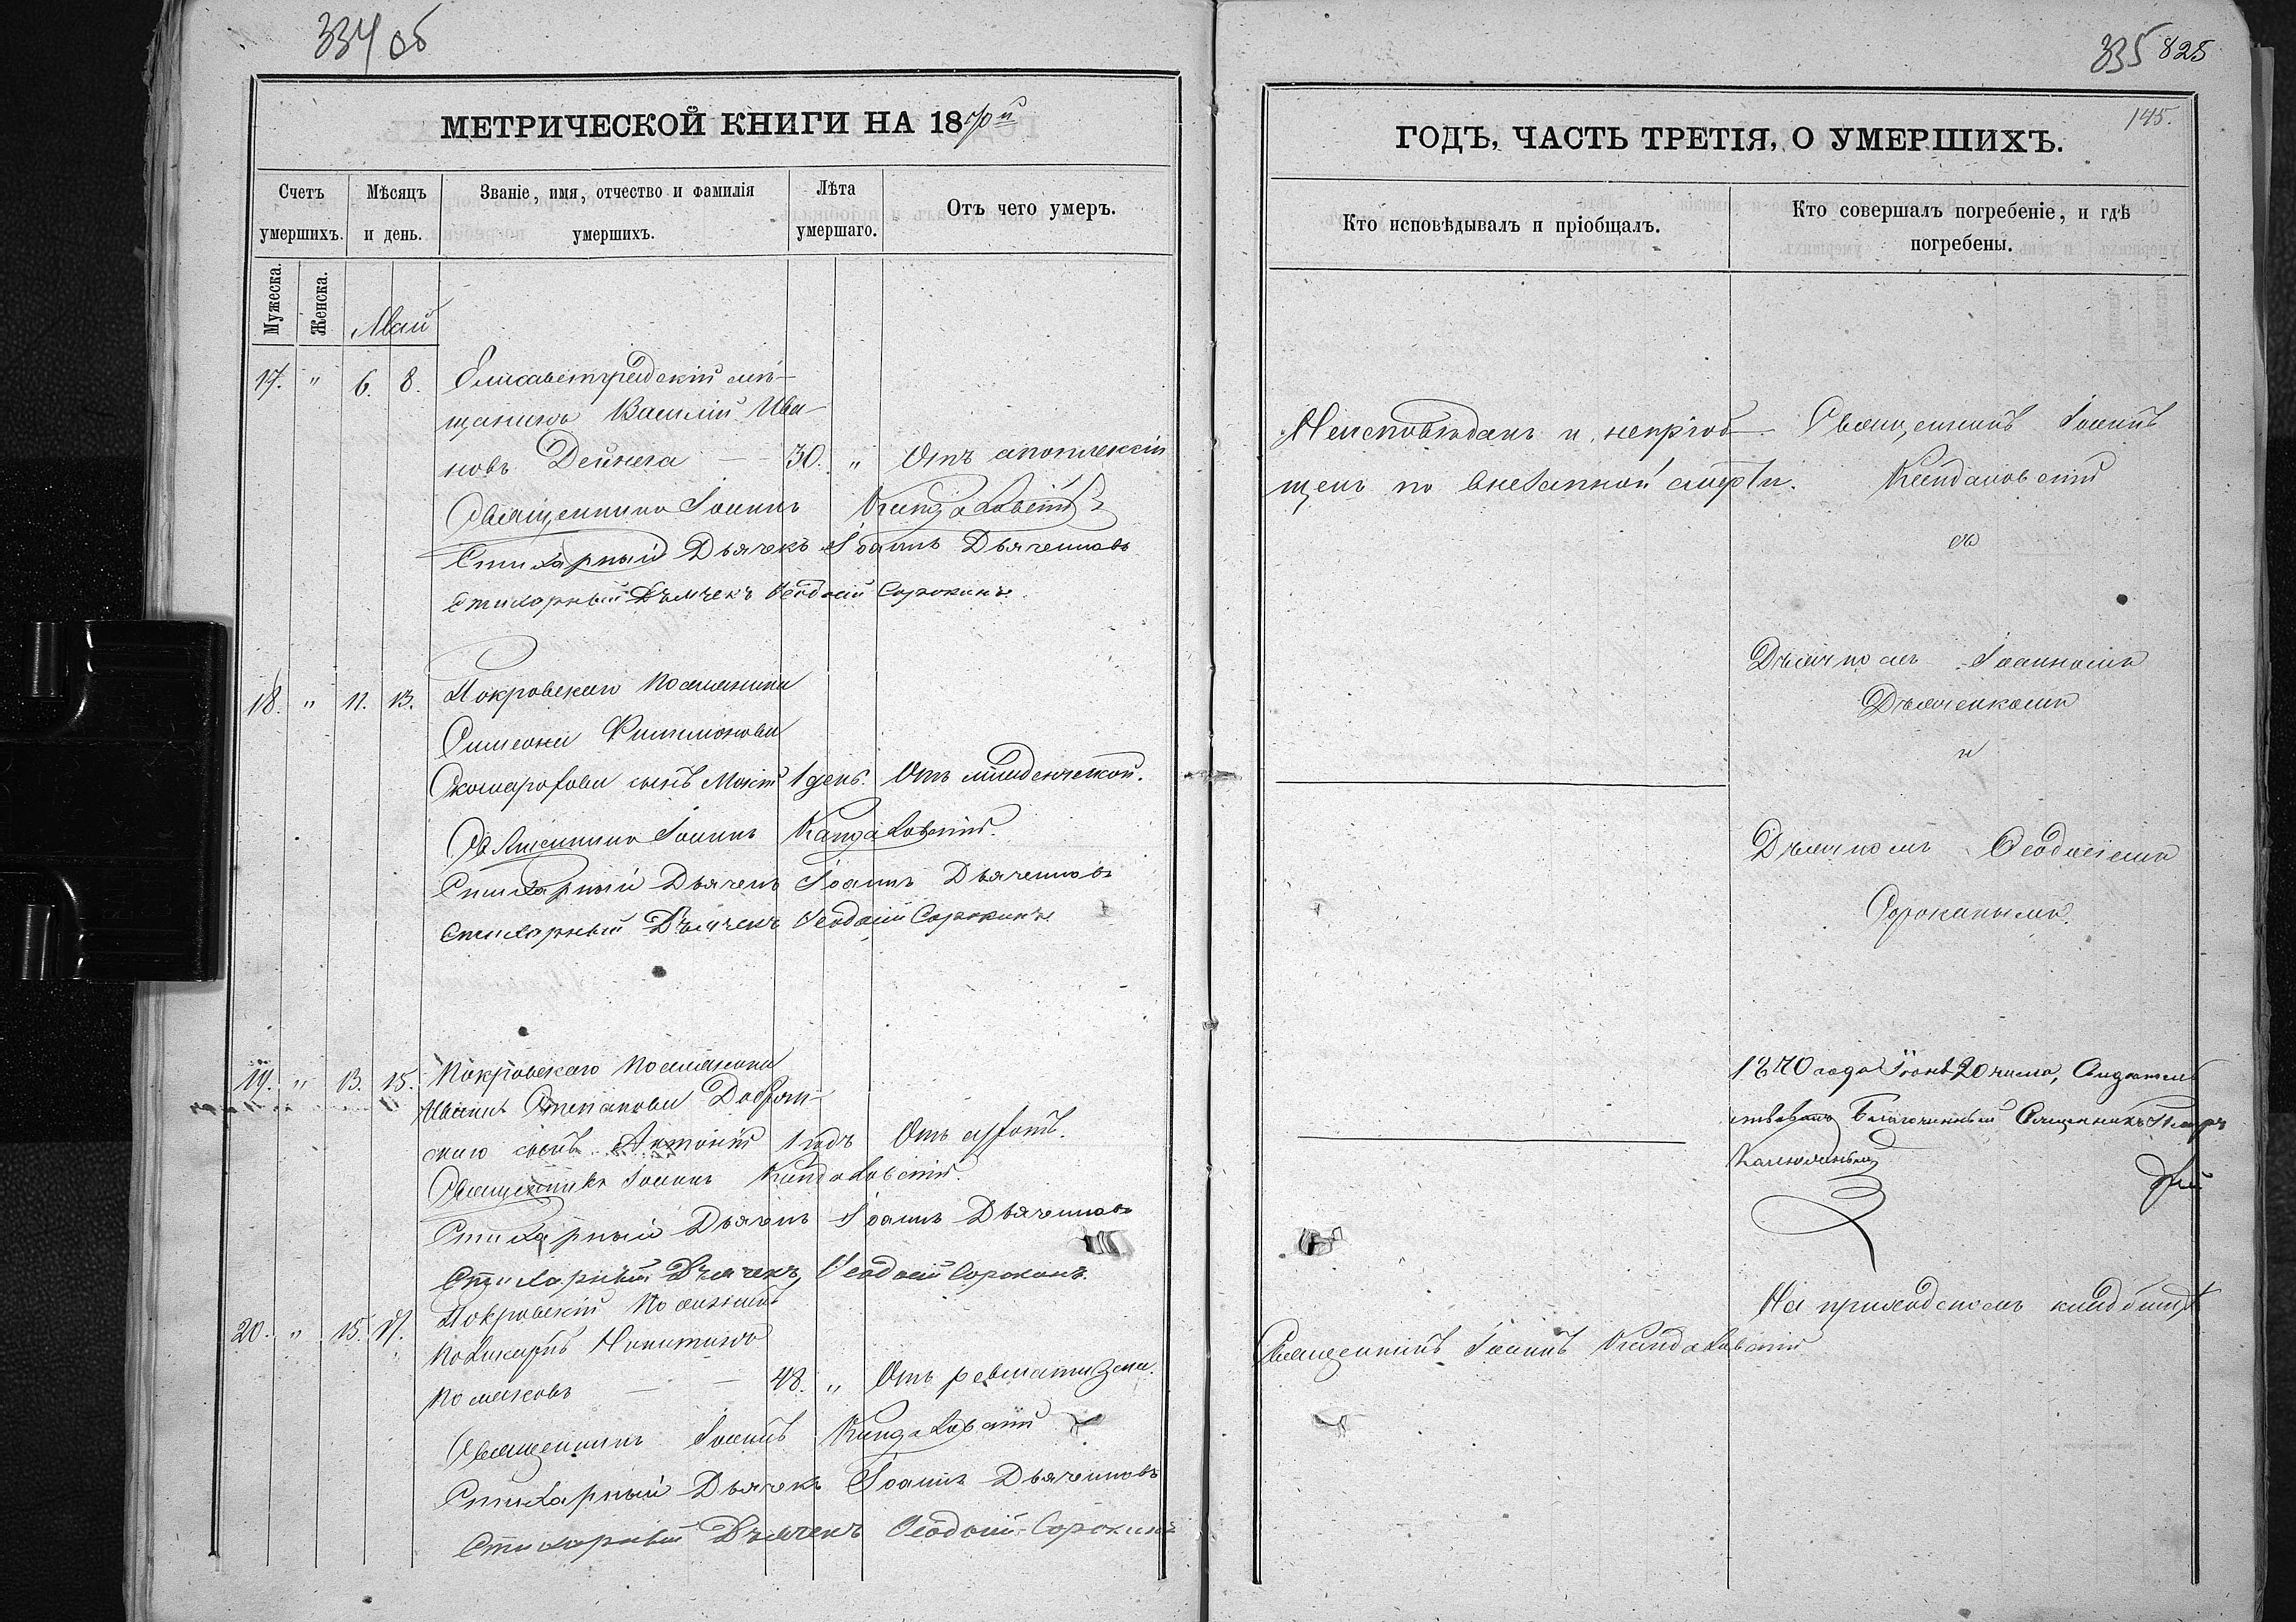 334 об
МЕТРИЧЕСКОЙ КНИГИ НА 1870й
Счетъ умершихъ.
Мѣсяцъ и день.
Званіе, имя, отчество и фамилія умершихъ.
Лѣта умершаго.
Отъ чего умеръ.
Мужеска.
Женска.
Май
17. " 6. 8. Елисаветградскій мѣ-
щанинъ Василій Ива-
новъ Дейнега — 30. " Отъ апоплексіи
Священникъ Іоаннъ
Стихарный Дьячекъ Іоаннъ Дьяченковъ
Стихарный Дьячекъ Ѳеодосій Сорокинъ
18. " 11. 13. Покровскаго поселянина
Симеона Филимонова
сынъ 1 день. Отъ младенческой.
Священникъ Іоаннъ
Стихарный Дьячекъ Іоаннъ Дьяченковъ
Стихарный Дьячекъ Ѳеодосій Сорокинъ
19. " 13. 15. Покровскаго поселянина
Ивана Степанова
сынъ Антоній 1 годъ Отъ
Священникъ Іоаннъ
Стихарный Дьячекъ Іоаннъ Дьяченковъ
Стихарный Дьячекъ Ѳеодосій Сорокинъ
20. " 15. 17. Покровскій поселянинъ
Поликарпъ Никитинъ
— — 48. " Отъ ревматизма.
Священникъ Іоаннъ
Стихарный Дьячекъ Іоаннъ Дьяченковъ
Стихарный Дьячекъ Ѳеодосій Сорокинъ
335 825
145.
ГОДЪ, ЧАСТЬ ТРЕТІЯ, О УМЕРШИХЪ.
Кто исповѣдывалъ и пріобщалъ.
Кто совершалъ погребеніе, и гдѣ
погребены.
Неисповѣданъ и непріоб-
щенъ по внезапной смерти.
Священникъ Іоаннъ
съ
Дьячкомъ Іоанномъ
Дьяченкомъ
и
Дьячкомъ Ѳеодосіемъ
Сорокинымъ.
1870 года Іюня 20 числа, Свидѣтель-
ствовалъ Благочинный Священникъ Петръ
На приходскомъ кладбищѣ
Священникъ Іоаннъ